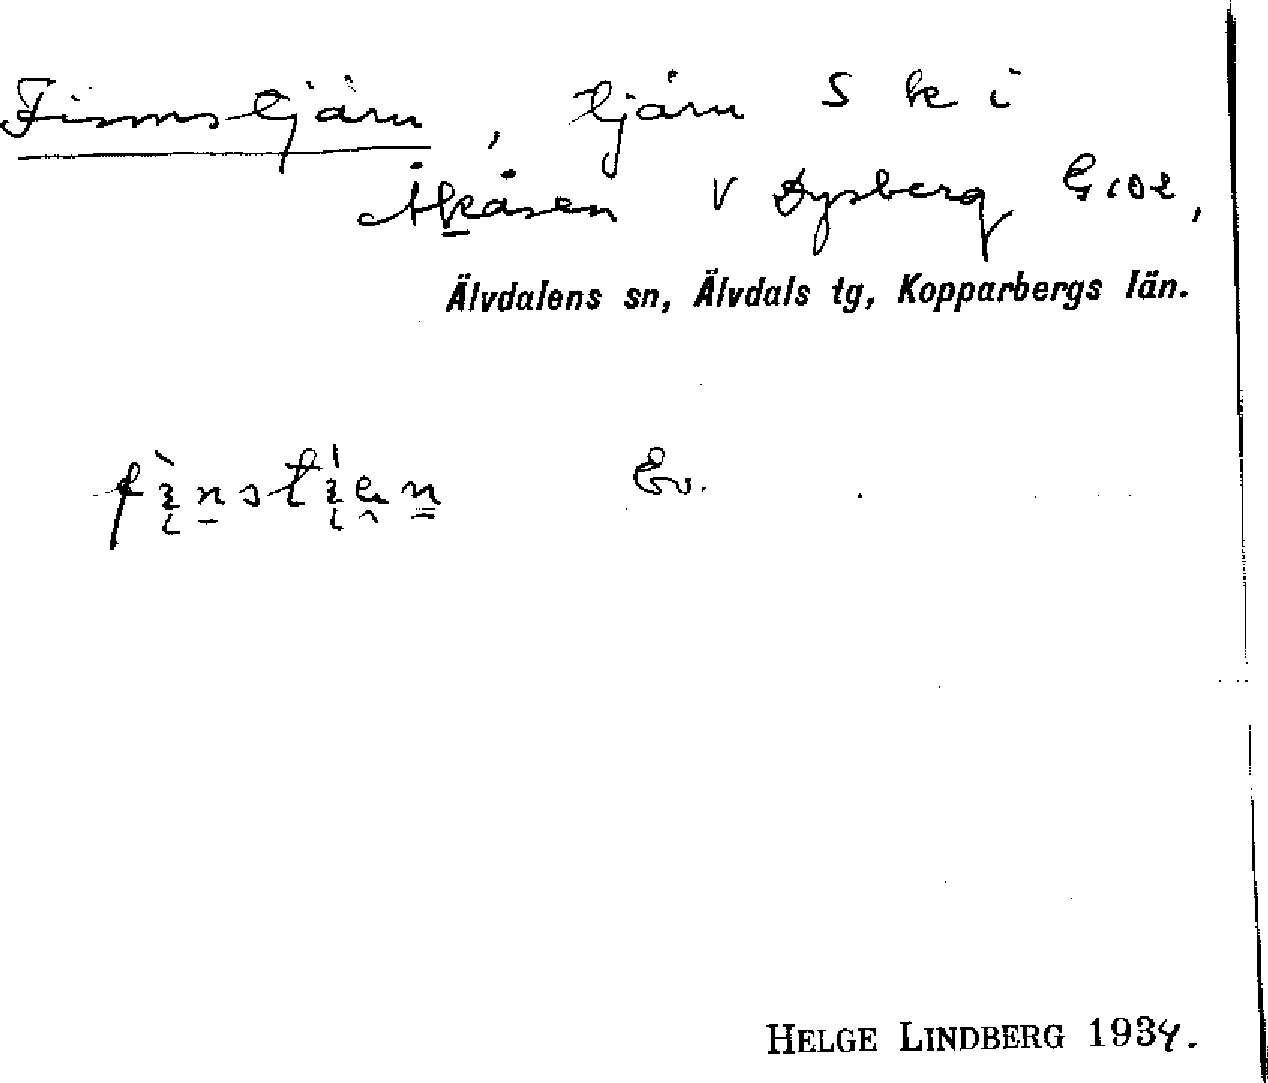 Finnstjärn, tjärn S k i
Åkåsen V Dysberg G 102,
Älvdalens sn, Älvdals tg, Kopparbergs län.
Ev.
HELGE LINDBERG 1934.